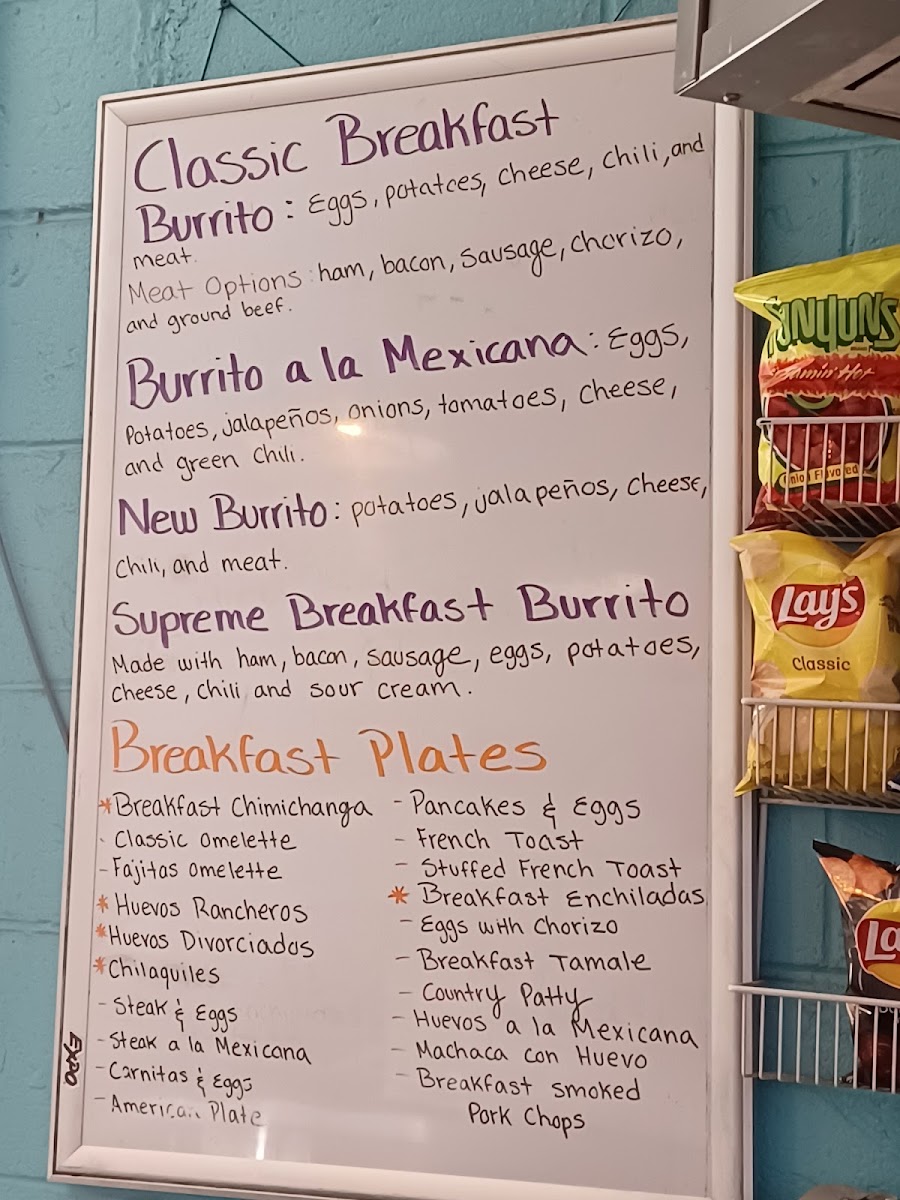 Classic Breakfast
Burrito: Eggs, potatoes, cheese, chili, and
meat.
Meat Options: ham, bacon, sausage, chorizo,
and ground beef.
Burrito a la Mexicana: Eggs,
Potatoes, jalapeños, onions, tomatoes, cheese,
and green chili.
New Burrito: potatoes, jalapeños, cheese,
chili, and meat.
Supreme Breakfast Burrito
Made with ham, bacon, sausage, eggs, potatoes,
cheese, chili and sour cream.
Breakfast Plates
*Breakfast Chimichanga
- Classic Omelette
- Fajitas Omelette
* Huevos Rancheros
*Huevos Divorciados
*Chilaquiles
- Steak & Eggs
- Steak a la Mexicana
- Carnitas & Eggs
- American Plate
- Pancakes & Eggs
- French Toast
- Stuffed French Toast
* Breakfast Enchiladas
- Eggs with Chorizo
- Breakfast Tamale
- Country Patty
- Huevos a la Mexicana
- Machaca con Huevo
- Breakfast smoked
Pork Chops
EXPO
FUNYUNS
Flamin' Hot
Onion Flavored
Lay's
Classic
La